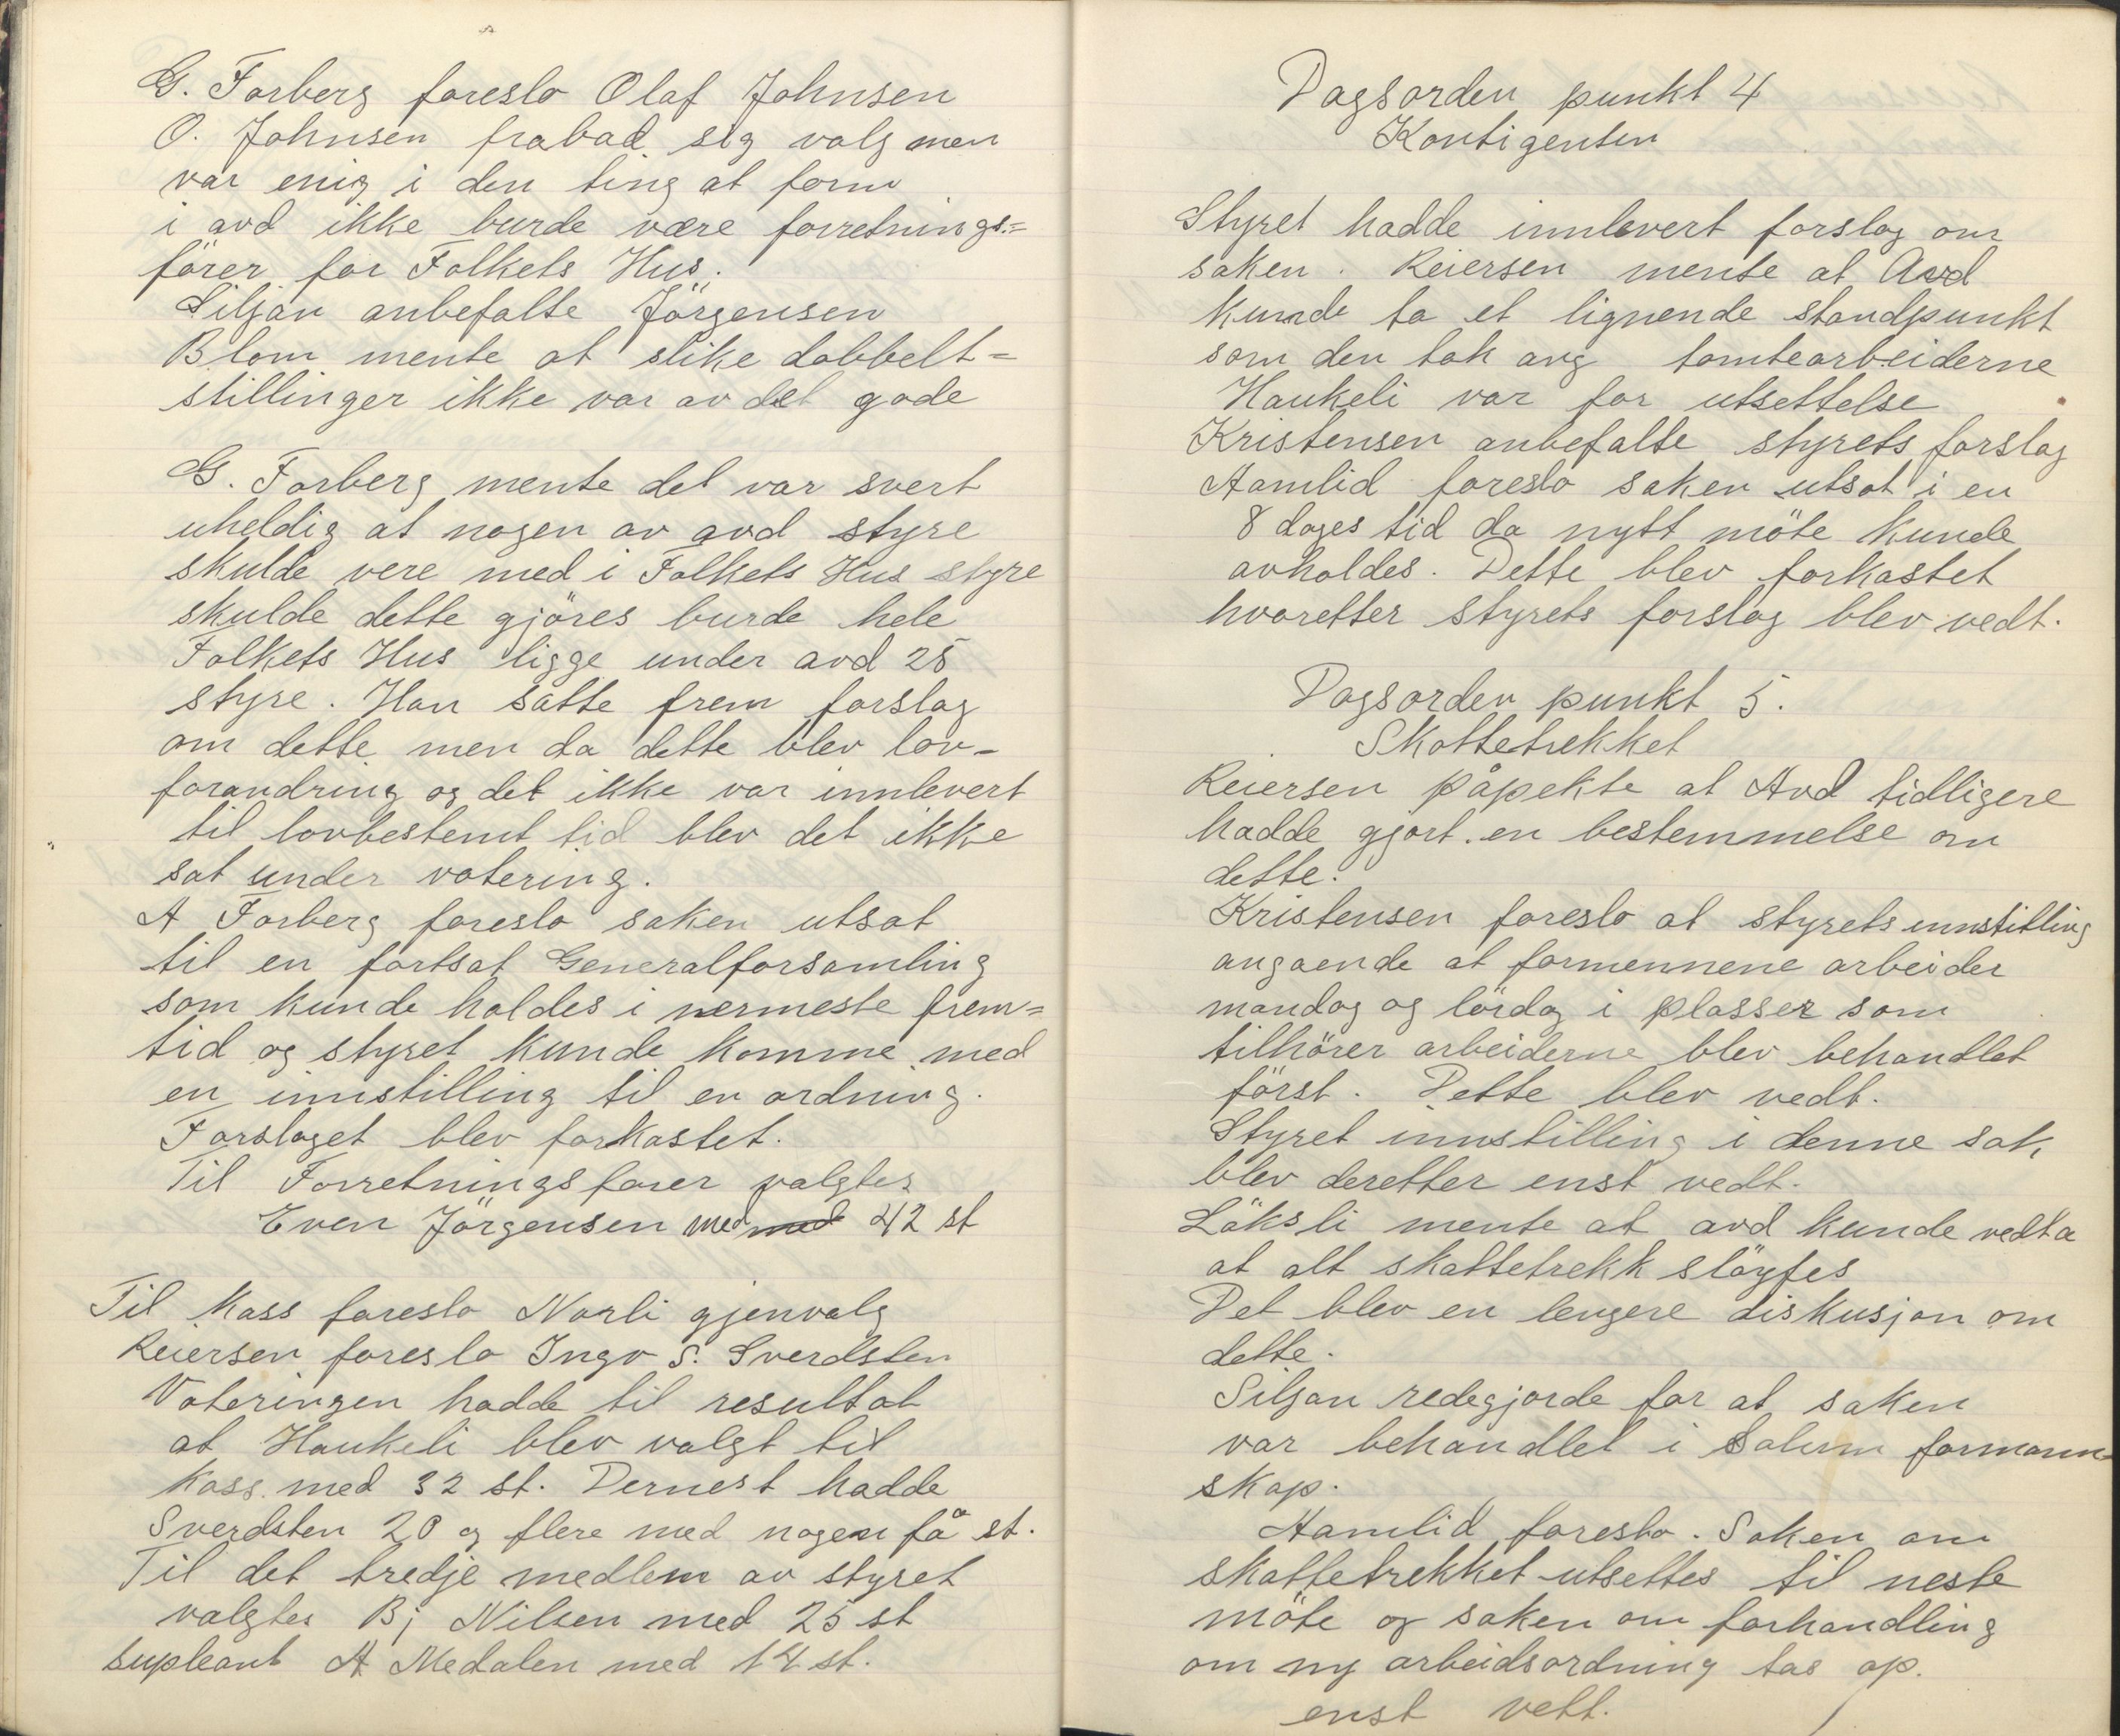 G. Forberg foreslo Olaf Johnsen
O. Johnsen frabad sig valg men
var enig i den ting at form
i avd ikke burde være forretnings=
förer for Folkets Hus.
Siljan anbefalte Jörgensen
Blom mente at slike dobbelt=
stillinger ikke var av det gode
G. Forberg mente det var svert
uheldig at nogen av avd styre
skulde vere med i Folkets Hus styre
skulde dette gjöres burde hele
Folkets Hus ligge under avd 25
styre. Han satte frem forslag
om dette men da dette blev lov-
forandring og det ikke var innlevert
til lovbestemt tid blev det ikke
sat under votering.
A Forberg foreslo saken utsat
til en fortsat Generalforsamling
som kunde holdes i nermeste frem=
tid og styret kunde komme med
en innstilling til en ordning.
Forslaget blev forkastet.
Til Forretningsforer valgtes
Even Jörgensen med med 42 st
Til Kass foreslo Norli gjenvalg
Reiersen foreslo Ingv S. Sverdsten
Voteringen hadde til resultat
at Haukeli blev valgt til
Kass. med 32 st. Dernest hadde
Sverdsten 20 og flere med nogen få st.
Til det tredje medlem av styret
valgtes Bj Nilsen med 25 st
supleant A Medalen med 14 st.
Dagsorden punkt 4
Kontigenten
Styret hadde innlevert forslag om
saken. Reiersen mente at Avd
kunde ta et lignende standpunkt
som den tok ang tomtearbeiderne
Haukeli var for utsettelse
Kristensen anbefalte styrets forslag
Aamlid foreslo saken utsat i en
8 dages tid da nytt möte kunde
avholdes. Dette blev forkastet
hvoretter styrets forslag blev vedt.
Dagsorden punkt 5.
Skattetrekket
Reiersen påpekte at Avd tidligere
hadde gjort en bestemmelse om
dette.
Kristensen foreslo at styrets innstilling
angaende at formennene arbeider
mandag og lördag i plasser som
tilhörer arbeiderne blev behandlet
först. Dette blev vedt.
Styret innstilling i denne sak
blev deretter enst vedt.
Löksli mente at avd kunde vedta
at alt skattetrekk slöyfes
Det blev en lengere diskusjon om
dette.
Siljan redegjorde for at saken
var behandlet i Solum formann=
skap.
Aamlid foreslo. Saken om
skattetrekket utsettes til neste
möte og saken om forhandling
om ny arbeidsordning tas op.
enst vett.